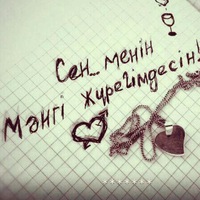 Сен... менін
Мәнгі жүрегімдесін!